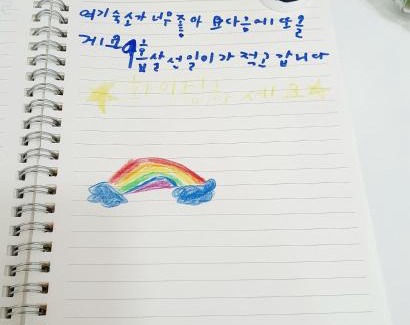 여기숙소가 너무좋아 요다음에 또올
게요 9홉살 선일이가 적고 갑니다
세요